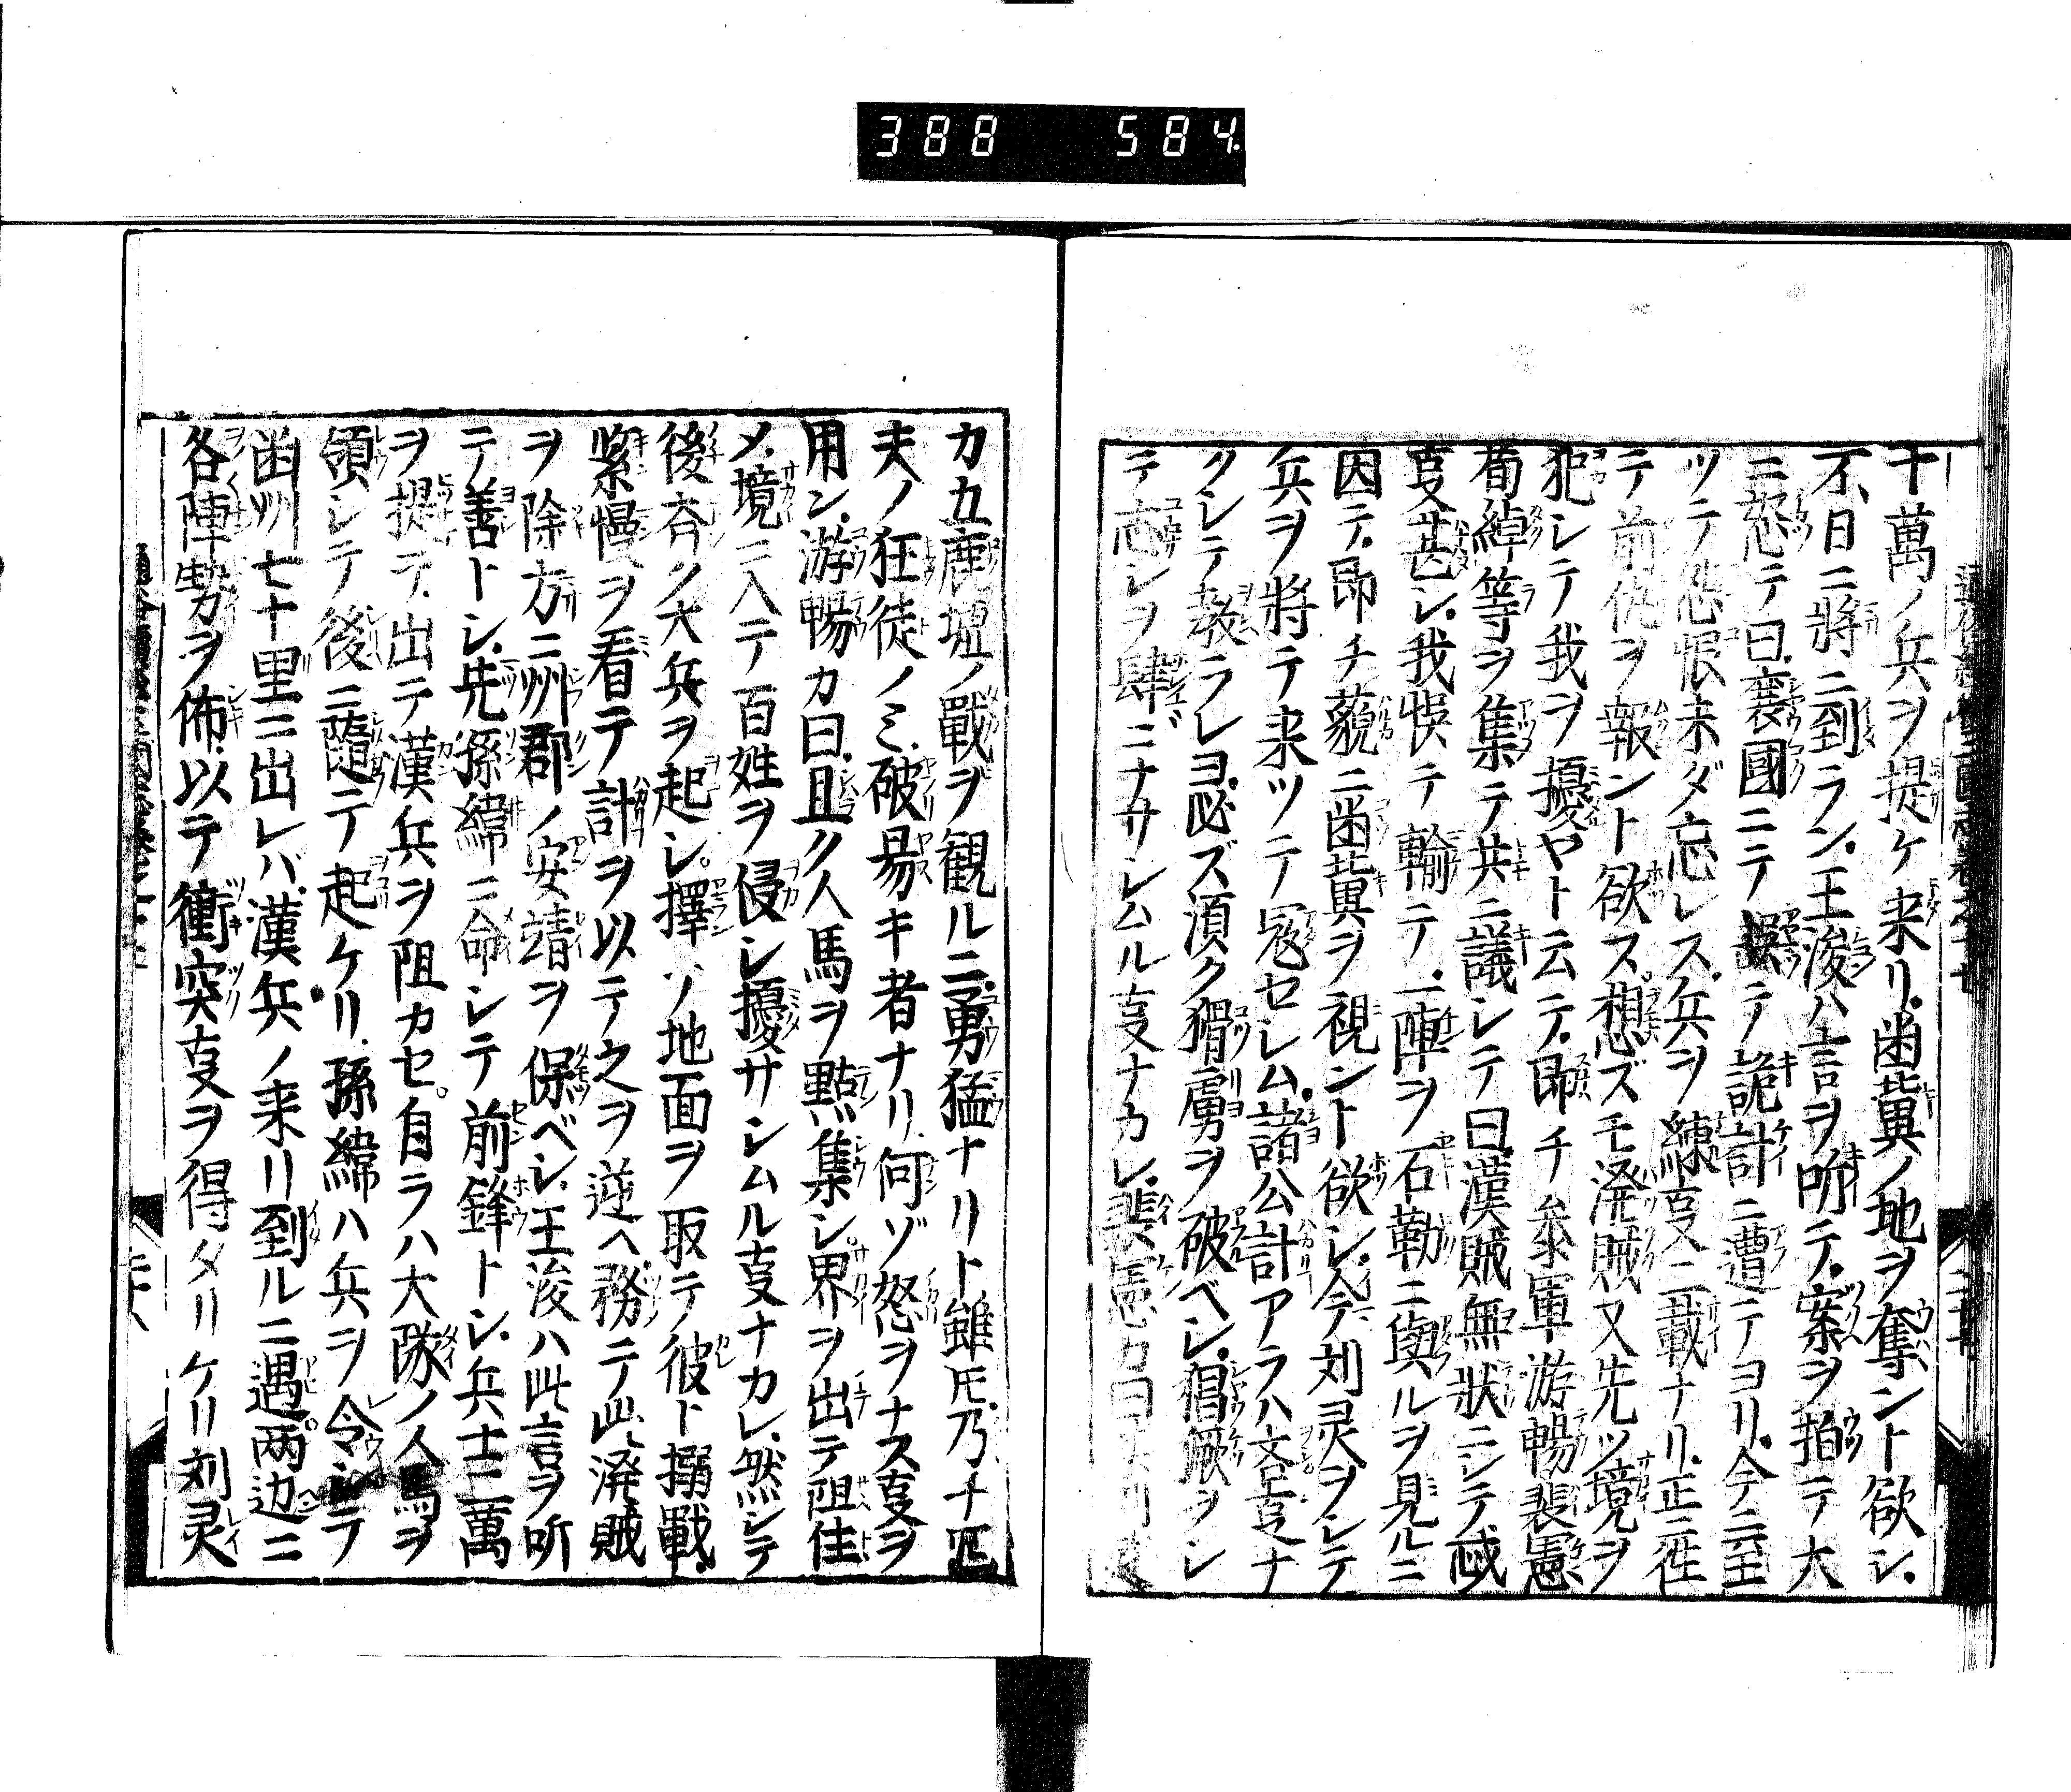 388 584.
十萬ノ兵ヲ提ケ来リ凾冀ノ地ヲ奪ント欲シ
不日ニ將ニ到ラン王浚ハ言ヲ听テ案ヲ拍テ大
ニ怒テ曰襄國ニテ誤テ詭計ニ遭テヨリ今ニ至
ツテ怨恨未ダ忘レス兵ヲ練叓二載ナリ正ニ徃
テ前仇ヲ報ント欲ス想ズモ溌賊又先ツ境ヲ
犯レテ我ヲ擾ヤト云テ即チ参軍游暢裴憲
荀綽等ヲ集テ共ニ議レテ曰漢賊無狀ニシテ
叓甚シ我悞テ輸テ一陣ヲ石勒ニ與ルヲ見ルニ
因テ即チ藐ニ凾冀ヲ視ント欲シ今刘灵ヲシテ
兵ヲ將テ来ツテ冦セシム諸公計アラハ叓ナ
クシテ教ラレヨ必ズ湏ク猾虜ヲ破ベシ猖獗ヲシ
テ志シヲ肆ニナサシムル叓ナカレ裴憲カ曰刘灵
カ五鹿墟ノ戰ヲ観ルニ勇猛ナリト雖𪜈乃チ匹
夫ノ狂徒ノミ破昜キ者ナリ何ゾ怒ヲナス叓ヲ
用ン游暢カ曰且ク人馬ヲ點集シ界ヲ出テ阻住
メ境ニ入テ百姓ヲ侵シ擾サシムル叓ナカレ然シテ
後斉ク大兵ヲ起シ擇ソノ地面ヲ取テ彼ト搦戰
緊慢ヲ看テ計ヲ以テ之ヲ逆ヘ務テ此溌賊
ヲ除方ニ州郡ノ安靖ヲ保ベシ王浚ハ此言ヲ听
テ善トシ先孫緯ニ命レテ前鋒トシ兵士二萬
ヲ提テ出テ漢兵ヲ阻カセ自ラハ大隊ノ人馬ヲ
領シテ後ニ隨テ起ケリ孫緯ハ兵ヲ令シテ
凾州七十里ニ出レバ漢兵ノ来リ到ルニ遇両边ニ
各陣勢ヲ佈以テ衝突叓ヲ得タリケリ刘灵